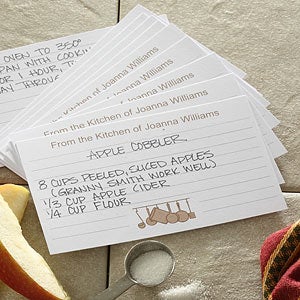 OVEN TO 350°
PAN WITH COOKING
OR 1 HOUR, T
WAY THROUG
From the Kitchen of Joanna Williams
From the Kitchen of Joanna Williams
From the Kitchen of Joanna Williams
APPLE COBBLER
8 CUPS PEELED, SLICED APPLES
(GRANNY SMITH WORK WELL)
1/3 CUP APPLE CIDER
1/4 CUP FLOUR